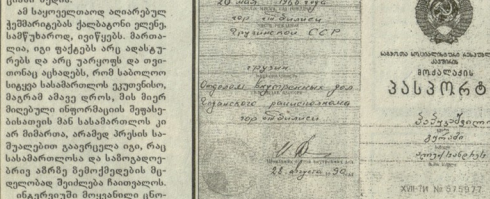 ამ საყოველთაოდ აღიარებულ
ჭეშმარიტებას ქალბატონი ელენე,
სამწუხაროდ, ივიწყებს. მართა-
ლია, იგი ფაქტებს არც ადასტუ-
რებს და არც უარყოფს და თვი-
თონაც აცხადებს, რომ საბოლოო
სიტყვა სასამართლოს ეკუთვნისო,
მაგრამ ამავე დროს, მის მიერ
მიღებული ინფორმაციის შეფასე-
ბისათვის მან სასამართლოს კი
არ მიმართა, არამედ პრესის სა-
შუალებით გაავრცელა იგი, რაც
სასამართლოსა და საზოგადოე-
ბრივ აზრზე ზემოქმედების მც-
დელობად შეიძლება ჩაითვალოს.
ინტერვიუში მოყვანილი ცნო-
гор. Тбилиси
Грузинской ССР
грузин
Отделом внутренних дел
райисполкома
гор. Тбилиси
28 августа 90
მოქალაქის
პასპორტი
XVII-ТИ № 575977